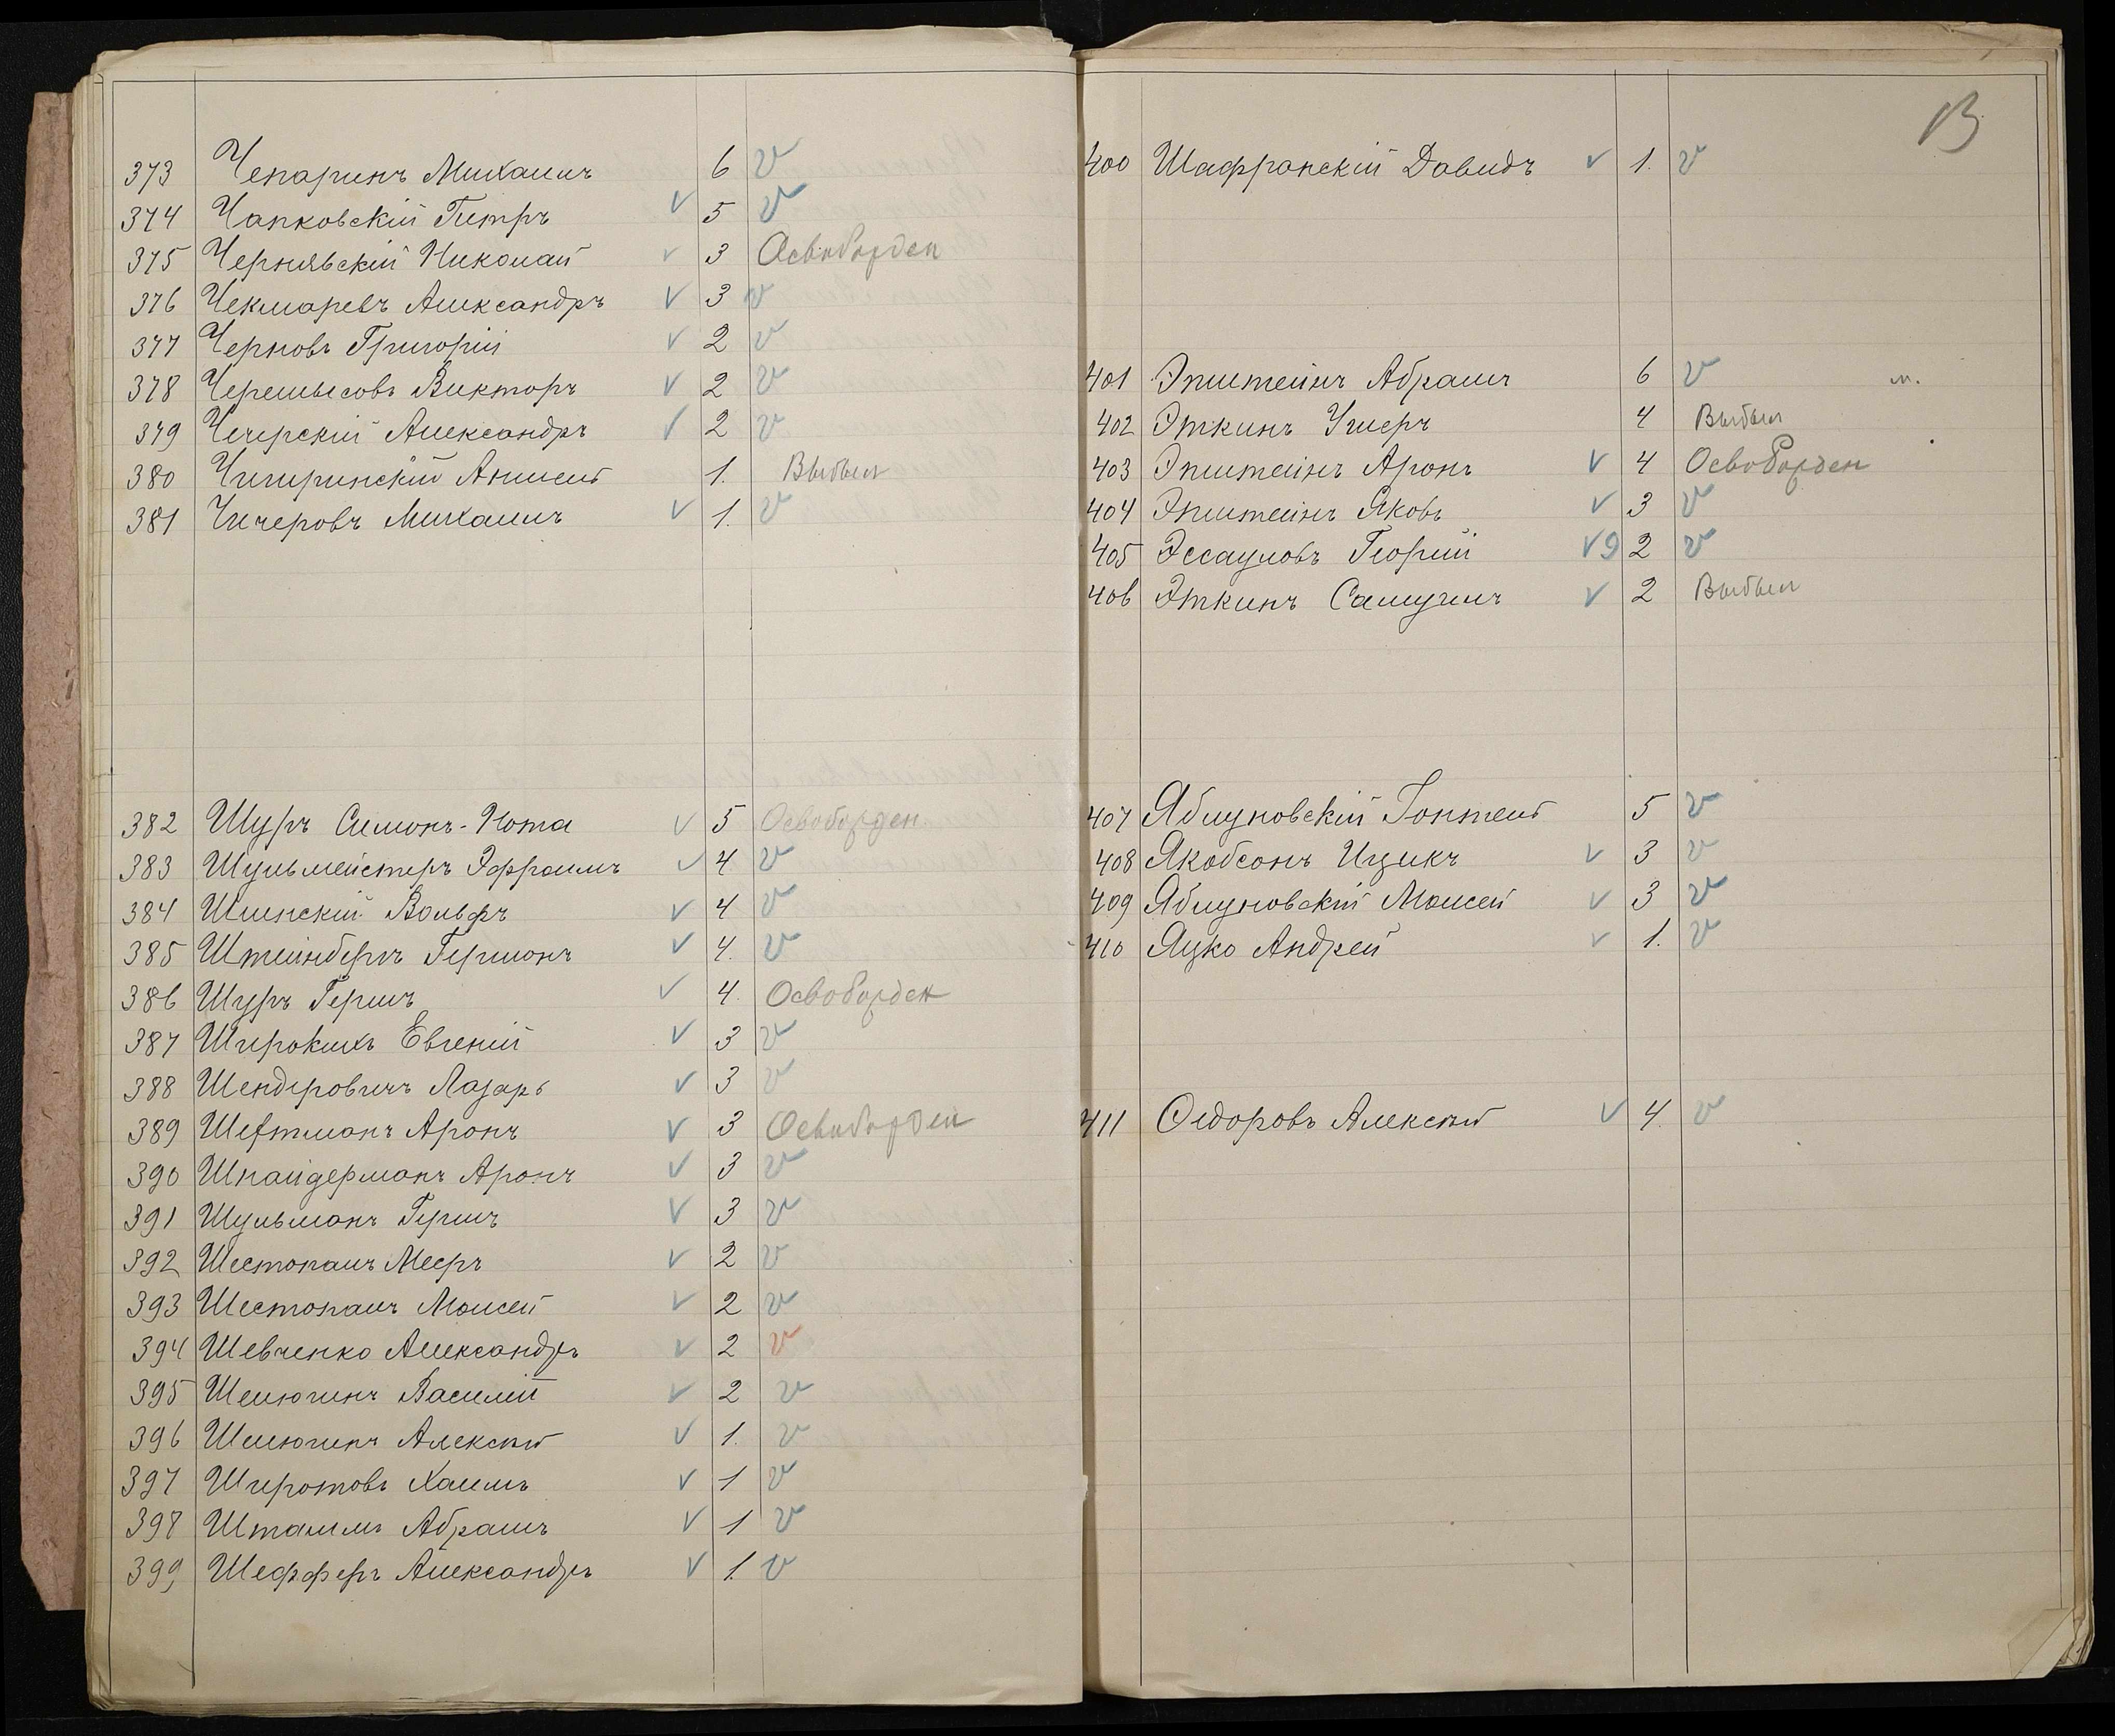 373 Чепаринъ Михаилъ 6 v
374 Чапковскій Петръ v 5 v
375 Чернявскій Николай v 3 Освобожден
376 Чекмаревъ Александръ v 3 v
377 Черновъ Григорій v 2 v
378 Черемысовъ Викторъ v 2 v
379 Чечерскій Александръ v 2 v
380 Чигиринскій 1. Выбыл
381 Чичеровъ Михаилъ v 1. v
382 Шуръ Симонъ-Нота v 5 Освобожден
383 Шульмейстеръ Эфраимъ v 4 v
384 Шлинскій Вольфъ v 4 v
385 Штейнбергъ Германъ v 4. v
386 Шуръ Гершъ v 4. Освобожден
387 Широкихъ Евгеній v 3 v
388 Шендеровичъ Лазарь v 3 v
389 Шефтманъ Аронъ v 3 Освобожден
390 Шнайдерманъ Аронъ v 3 v
391 Шульманъ Гершъ v 3 v
392 Шестопалъ Мееръ v 2 v
393 Шестопалъ Моисей v 2 v
394 Шевченко Александръ v 2 v
395 Шелюгинъ Василій v 2 v
396 Шелюгинъ Алексѣй v 1. v
397 Хаимъ v 1 v
398 Штаммъ Абрамъ v 1 v
399 Шефферъ Александръ v 1. v
13
400 Шафранскій Давидъ v 1. v
401 Эпштейнъ Абрамъ 6 v
402 Эткинъ Ушеръ 4 Выбыл
403 Эпштейнъ Аронъ v 4 Освобожден
404 Эпштейнъ Яковъ v 3 v
405 Эссауловъ Георгій v 9 2 v
406 Эткинъ Самуилъ v 2 Выбыл
407 Яблуновскій 5 v
408 Якобсонъ Ицикъ v 3 v
409 Яблуновскій Моисей v 3 v
410 Яцко Андрей v 1. v
411 Ѳедоровъ Алексѣй v 4. v